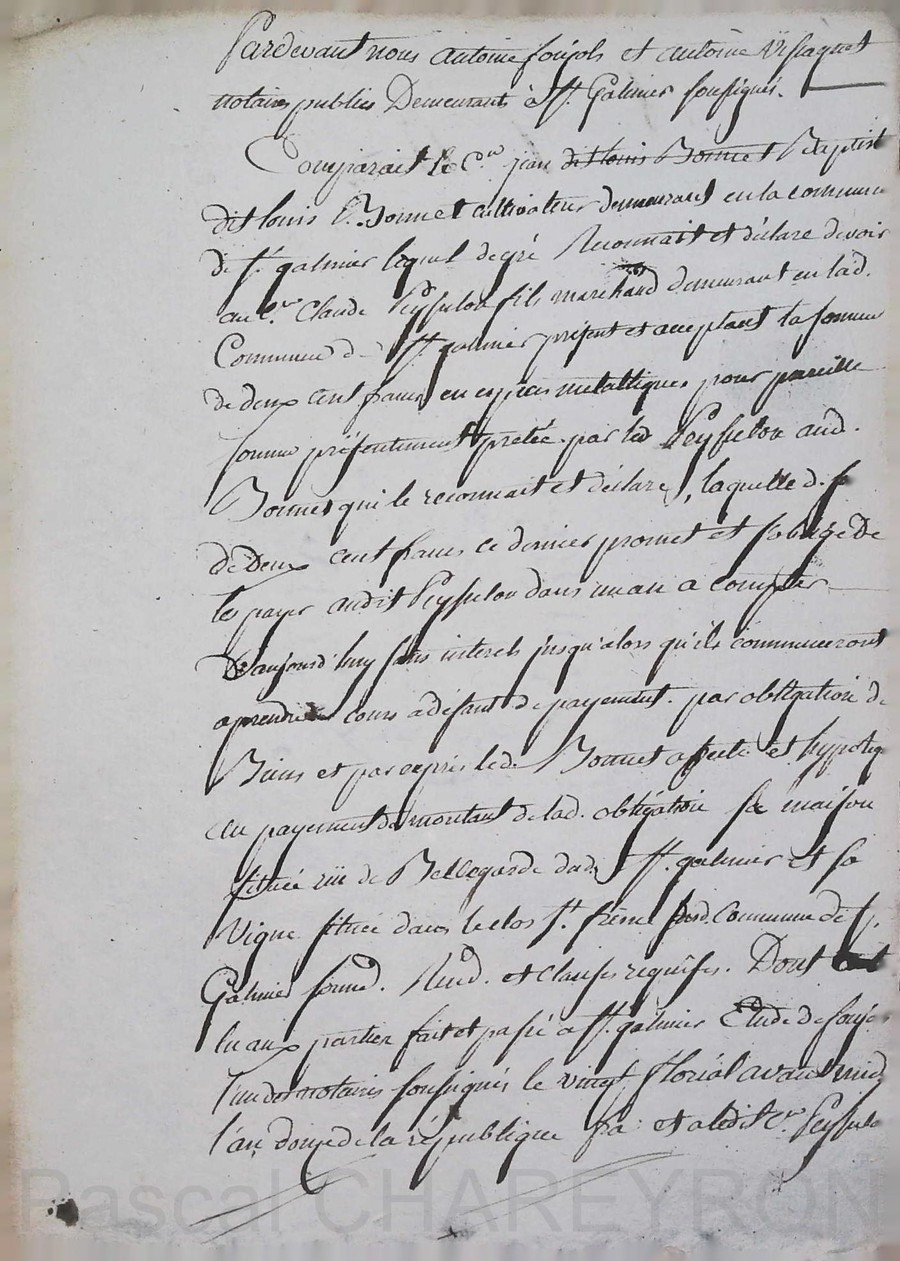 Pardevant nous antoine foujols et antoine
notaires publics Demeurants à St. Galmier soussignés.
Comparait le Cen. jean dit louis Bonnet Baptist
dit louis Bonnet cultivateur demeurant en la commune
de St. galmier lequel de gré Reconnait et déclare devoir
au Cen. Claude Peysselon fils marchand demeurant en lad.
Commune de St. galmier présent et acceptant la somme
de deux cent francs en espèces metalliques pour pareille
somme présentement pretée par led Peysselon aud.
Bonnet qui le reconnait et déclare, laquelle d. s
de Deux cent francs ce dernier promet et soblige De
les payer audit Peysselon dans un an a compter
D'aujourd'huy sans interets jusqu'alors qu'ils commenceront
a prendre cours a défaut de payement. par obligation de
Biens et par exprès led. Bonnet affecte et hypoteq
au payement du montant de lad. obligation sa maison
située rue de Bellegarde dud. St. galmier et sa
Vigne située dans le clos St. Commune de St.
Galmier soumd. Rend. et clauses requises. Dont
lu aux parties fait et passé a St. galmier Etude de foujo
l'un des notaires soussignés le vingt floréal avant mid
l'an douze de la république fra. et a ledit Cen. Peysselo
Pascal CHAREYRON